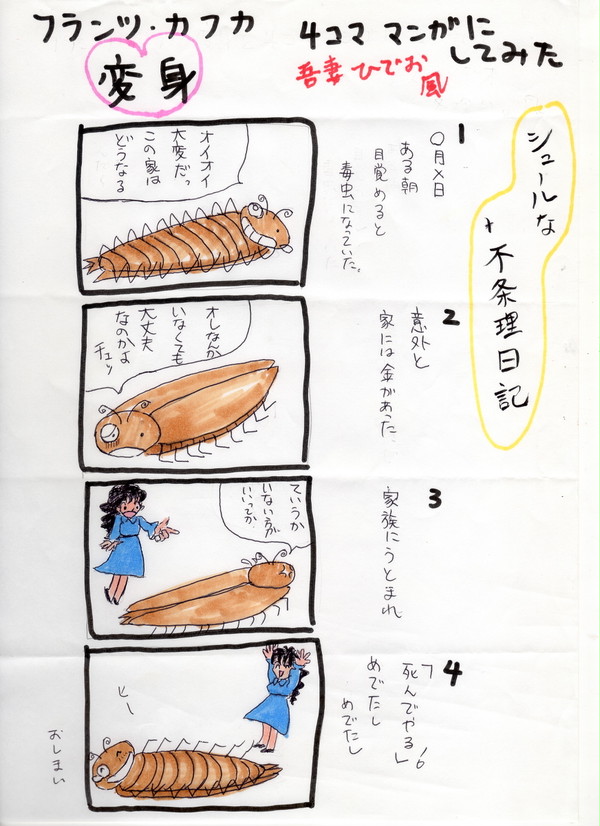 フランツ・カフカ
変身
4コマ マンガに
してみた
吾妻ひでお
風
シュールな
+ 不条理日記
1
〇月×日
ある朝
目覚めると
毒虫になっていた。
オイオイ
大変だっ
この家は
どうなる
2
意外と
家には金があった
オレなんか
いなくても
大丈夫
なのかよ
チェッ
3
家族にうとまれ
ていうか
いない方が
いいってか
4
「死んでやる!」
めでたし
めでたし
ヒー
おしまい